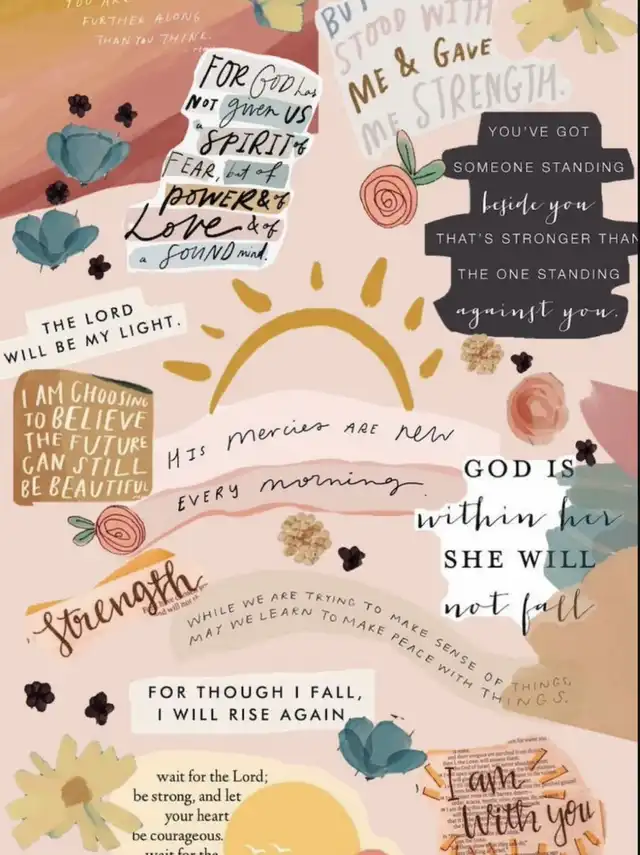 YOU ARE
FURTHER ALONG
THAN YOU THINK.
BUT
STOOD WITH
ME & GAVE
ME STRENGTH.
FOR GOD has
NOT given US
a SPIRIT of
FEAR, but of
POWER & of
LOVE & of
a SOUND mind.
YOU'VE GOT
SOMEONE STANDING
beside you
THAT'S STRONGER THAN
THE ONE STANDING
against you.
THE LORD
WILL BE MY LIGHT.
I AM CHOOSING
TO BELIEVE
THE FUTURE
CAN STILL
BE BEAUTIFUL
HIS mercies ARE new
EVERY morning.
GOD IS
within her
SHE WILL
not fall
strength
WHILE WE ARE TRYING TO MAKE SENSE OF THINGS,
MAY WE LEARN TO MAKE PEACE WITH THINGS.
FOR THOUGH I FALL,
I WILL RISE AGAIN
wait for the Lord;
be strong, and let
your heart
be courageous.
wait for the
I am
with you